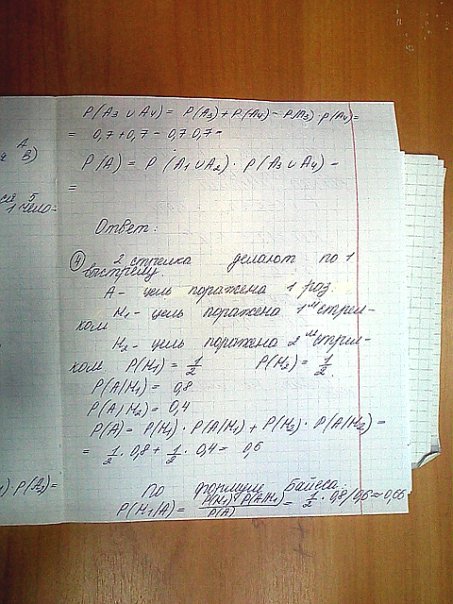 A
B)
5
1 чело-
P(A3 ∪ A4) = P(A3) + P(A4) - P(A3) · P(A4) =
= 0,7 + 0,7 - 0,7 0,7 =
P(A) = P (A1 ∪ A2) · P(A3 ∪ A4) =
=
Ответ:
4) 2 стрелка делают по 1
выстрелу
A - цель поражена 1 раз
H1 - цель поражена 1ым стрел-
ком
H2 - цель поражена 2ым стрел-
ком P(H1) = 1/2 P(H2) = 1/2
P(A|H1) = 0,8
P(A|H2) = 0,4
P(A) = P(H1) · P(A|H1) + P(H2) · P(A|H2) =
= 1/2 · 0,8 + 1/2 · 0,4 = 0,6
) P(A2) =
По формуле Байеса:
P(H1|A) = P(H1) · P(A|H1) / P(A) = 1/2 · 0,8/0,6 ≈ 0,66